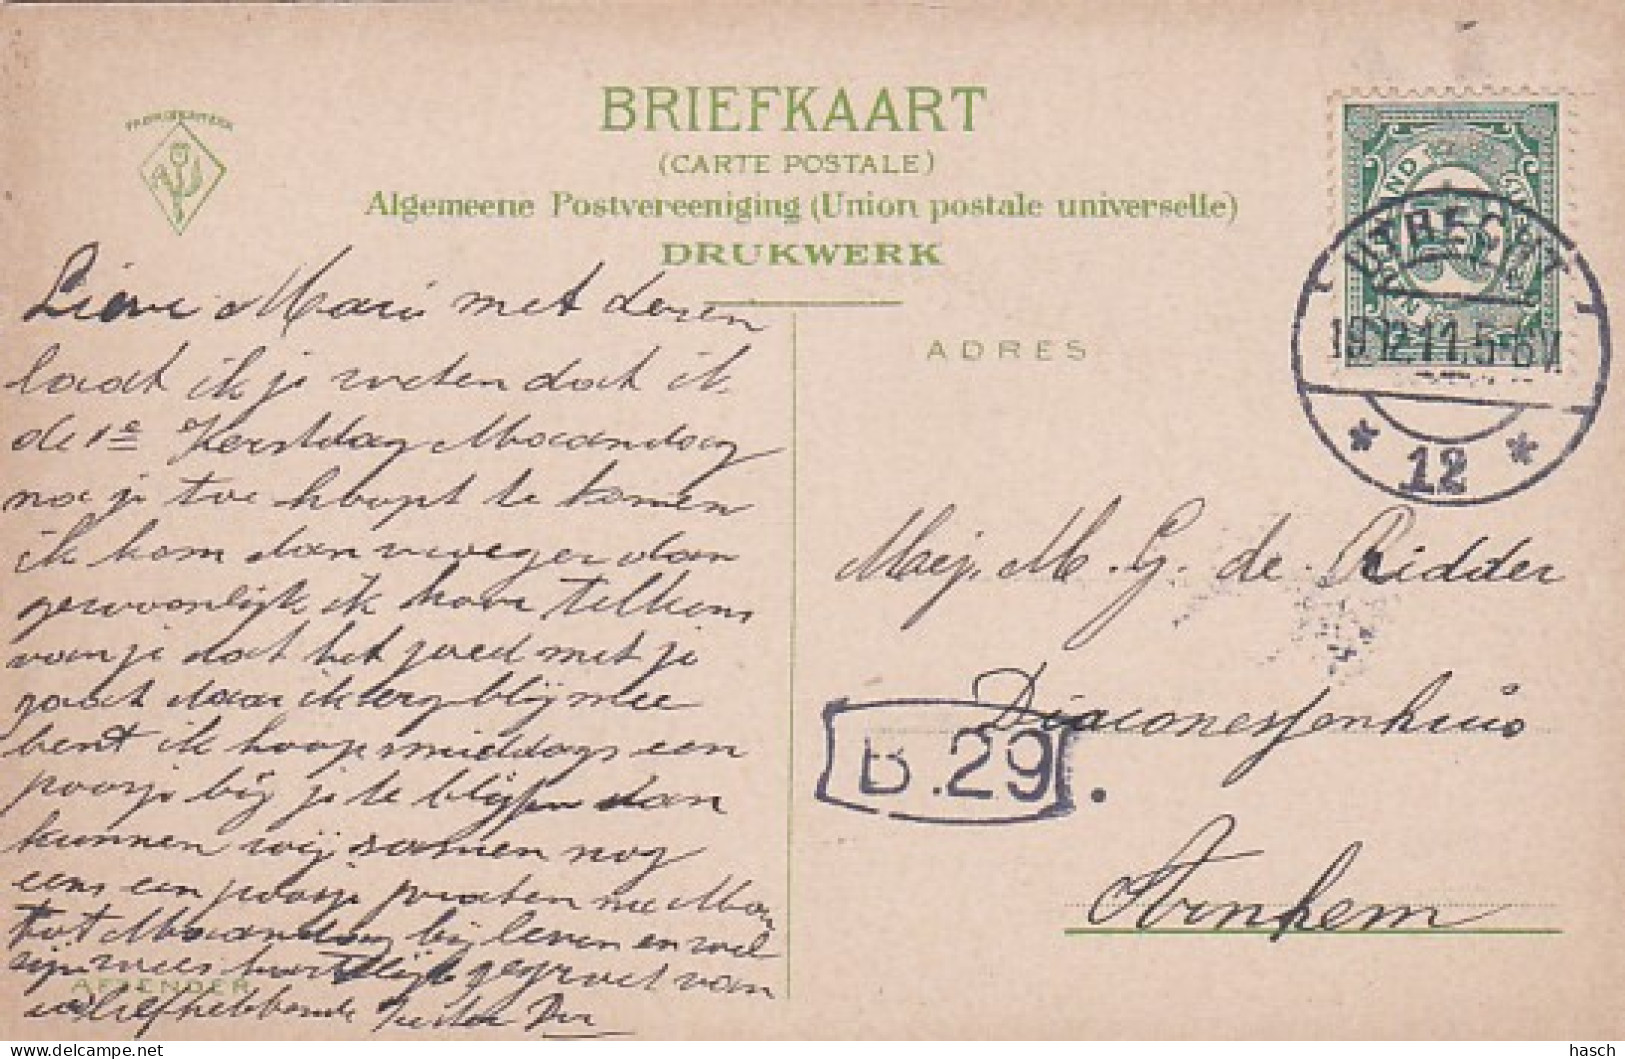 BRIEFKAART
(CARTE POSTALE)
Algemeene Postvereeniging (Union postale universelle)
DRUKWERK
UTRECHT
19.12.11.5-6V
* 12 *
Lieve Marie met dezen
laat ik je weten dat ik
de 1e Kerstdag Maandag
na je toe hoopt te komen
ik kom dan vroeger dan
gewoonlijk ik hoor telkens
van je dat het goed met je
gaat daar ik erg blij mee
bent ik hoop smiddags een
poosje bij je te blijfen dan
kunnen wij samen nog
eens een poosje praten nu Ma
tot Maandag bij leven en wel
zijn wees hartelijk gegroet van
u liefhebbende Zuster
ADRES
Mej. M. G. de Ridder
Diaconessenhuis
B.29.
Arnhem
AFZENDER
hasch